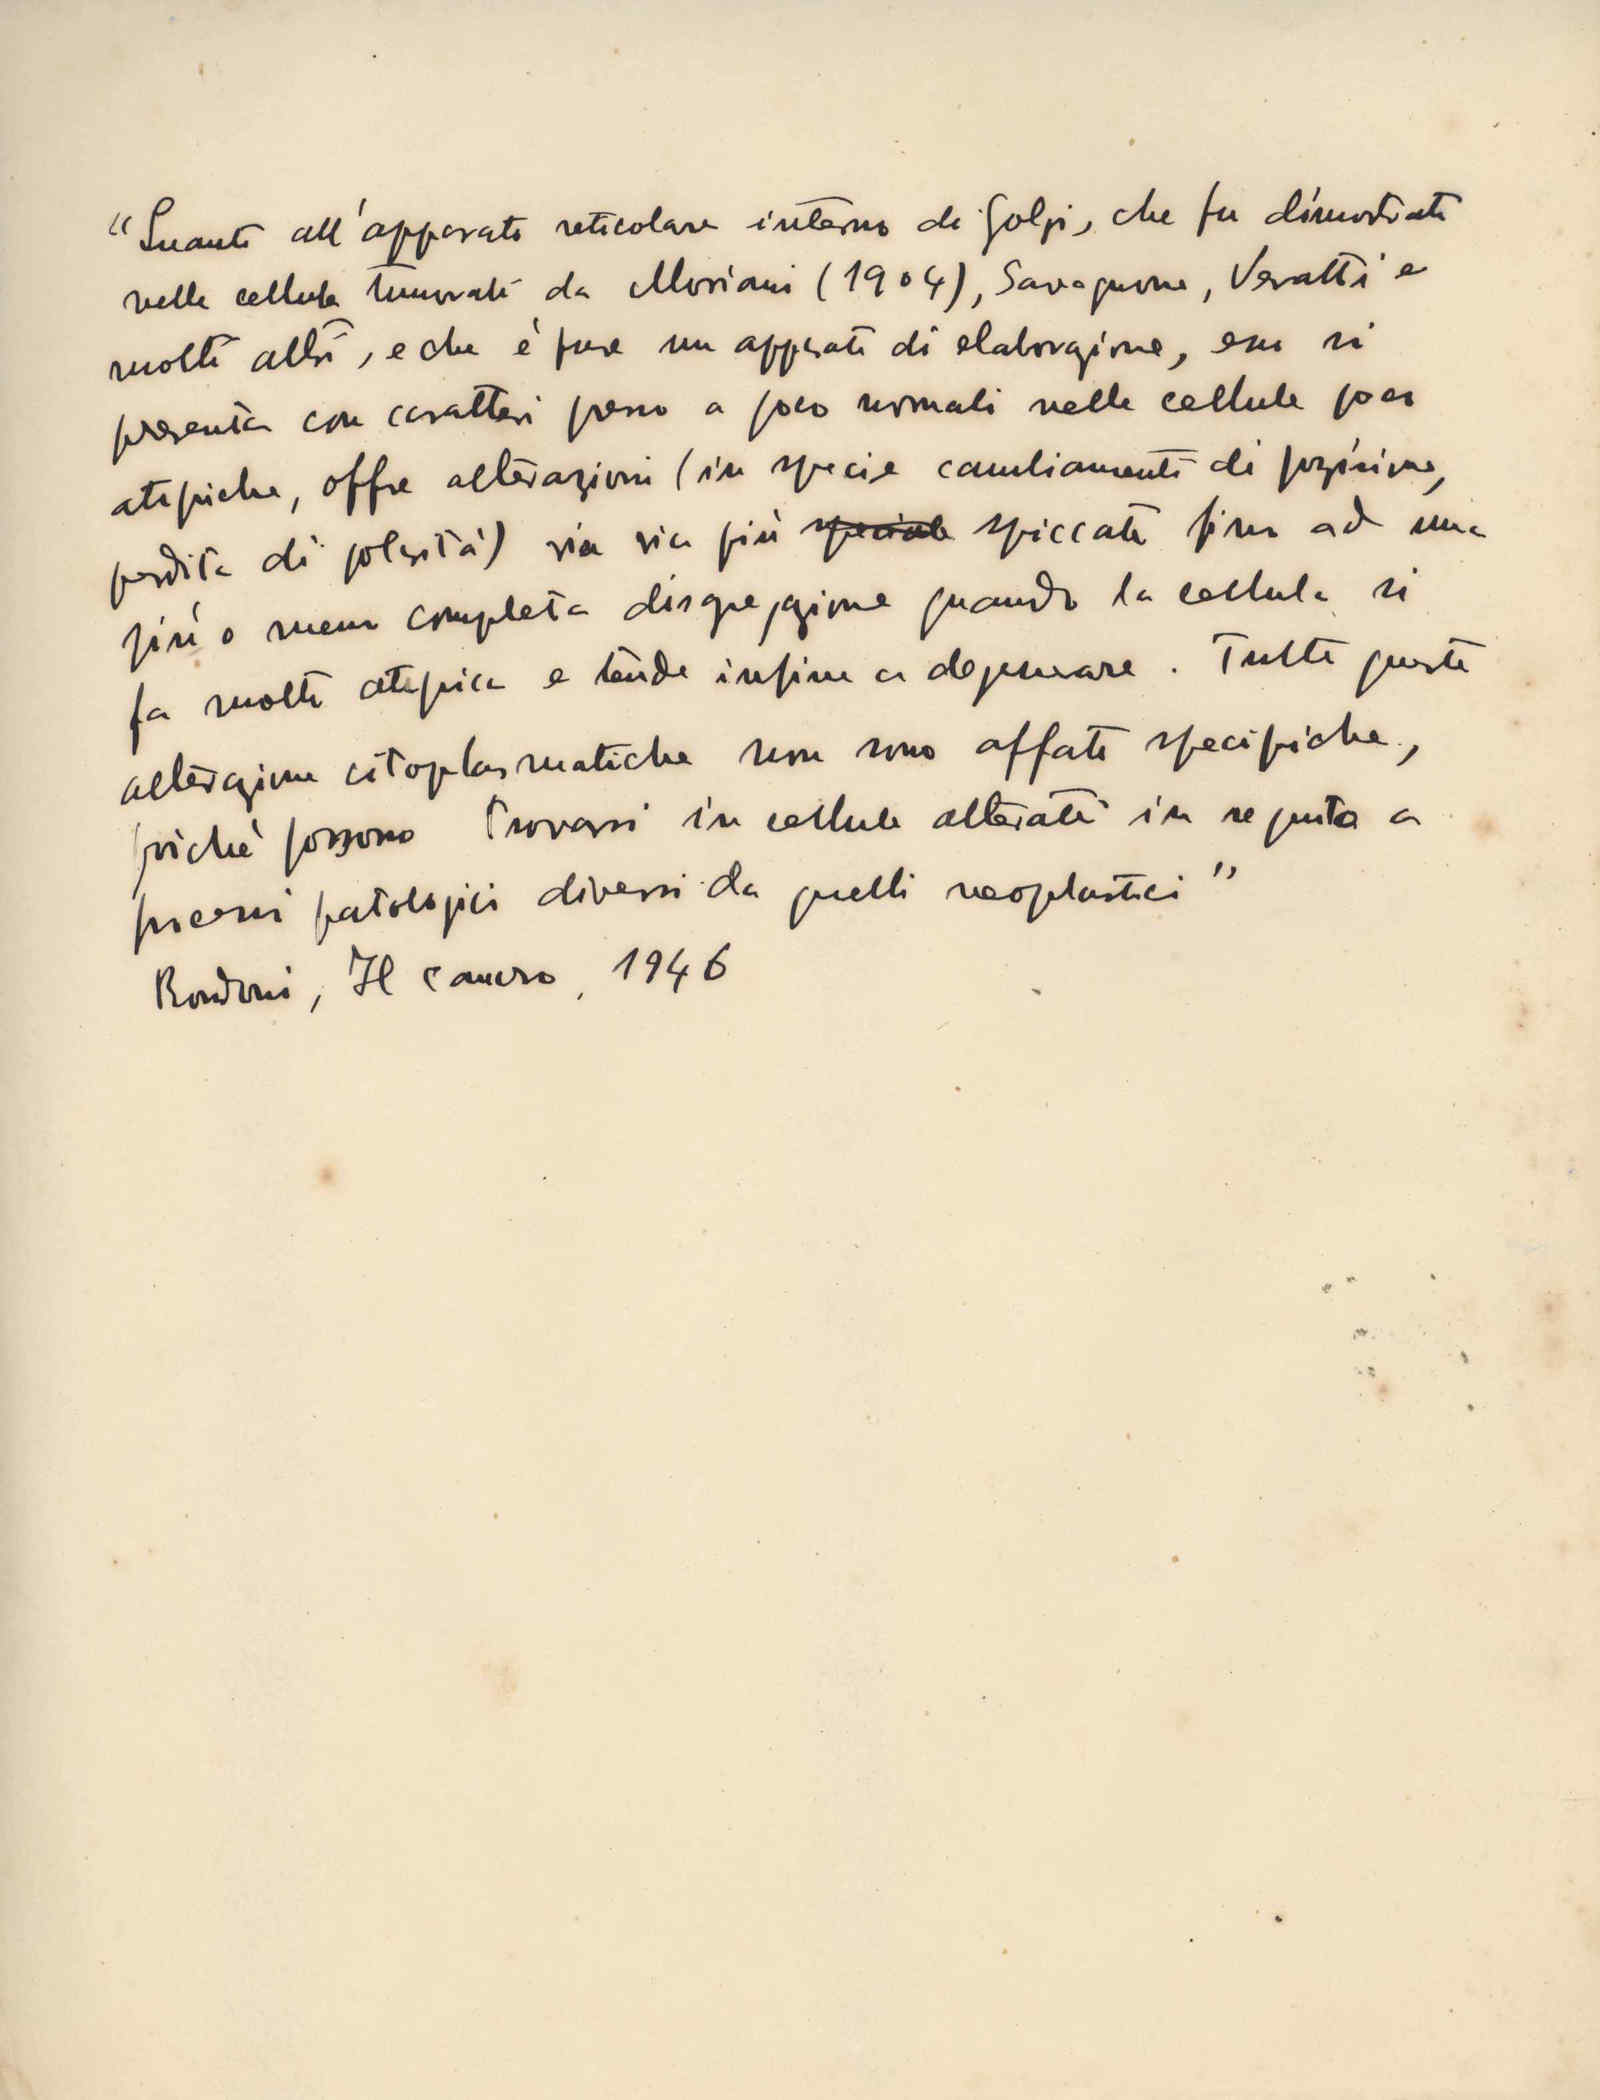 "Quanto all'apparato reticolare interno di Golgi, che fu dimostrato
nelle cellule tumorali da Moriani (1904), Savagnone, Veratti e
molti altri, e che è pure un apparato di elaborazione, esso si
presenta con caratteri presso a poco normali nelle cellule poco
atipiche, offre alterazioni (in specie cambiamenti di posizione,
perdita di polarità) via via più speciale spiccate fino ad una
più o meno completa disgregazione quando la cellula si
fa molto atipica e tende infine a degenerare. Tutte queste
alterazione citoplasmatiche non sono affatto specifiche,
poiché possono trovarsi in cellule alterate in seguito a
processi patologici diversi da quelli neoplastici"
Rondoni, Il cancro, 1946